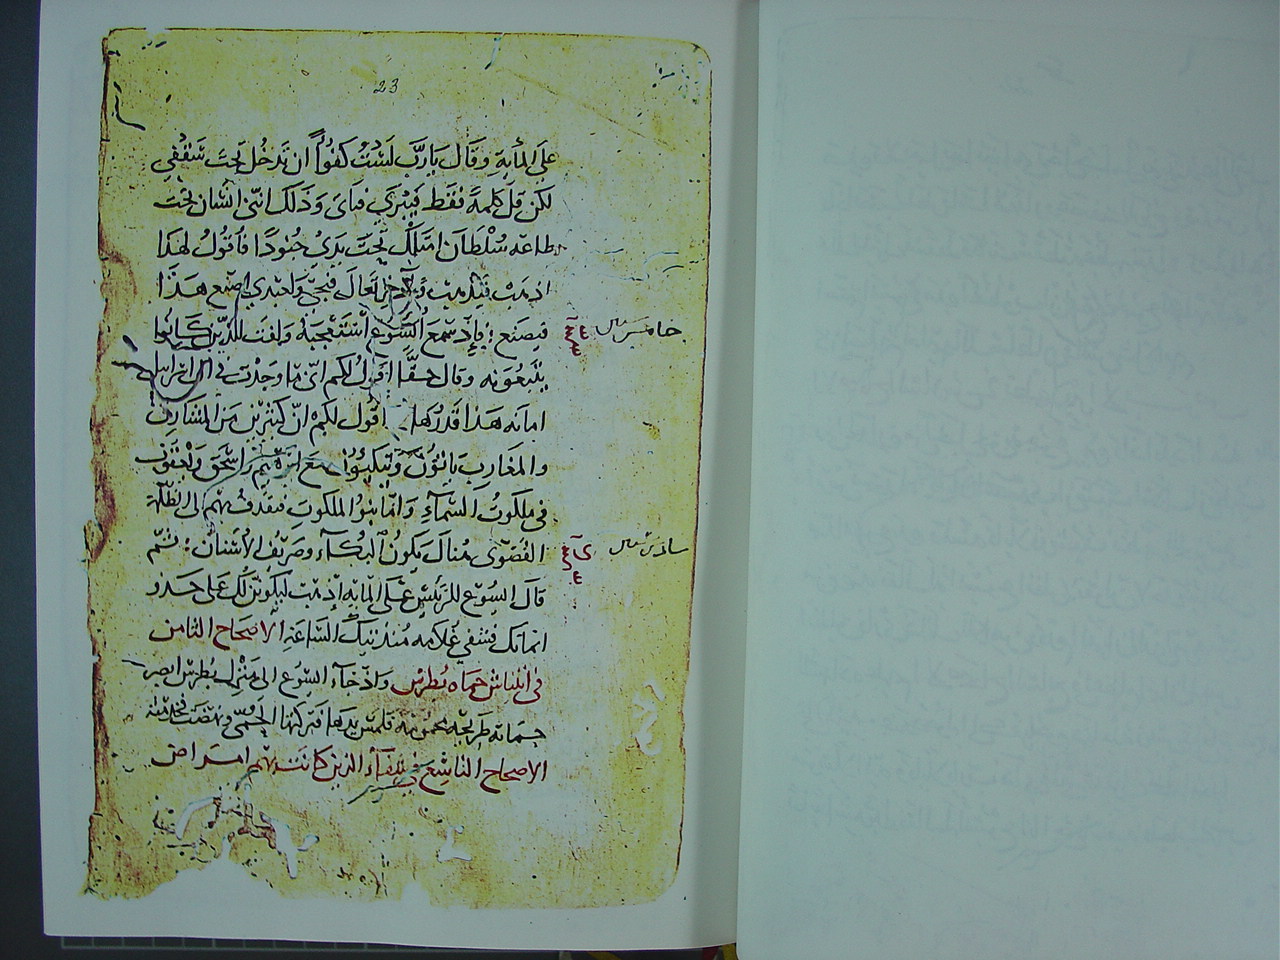 23
على المأية وقال يا رب لست كفوًا ان تدخل تحت سقفي
لكن قل كلمة فقط فيبرى فتاى وذلك انني انسان تحت
طاعه سلطان امتلك تحت يدي جنودًا فأقول لهذا
اذهب فيذهب ولآخر تعال فيجي ولعبدي اصنع هذا
فيصنع : فإذ سمع السوع استعجبه والفت للذين كانوا
يتبعونه وقال حقًّا اقول لكم اني ما وجدت في آل اسرايل
امانه هذا قدرها اقول لكم ان كثيرين من المشارق
والمغارب ياتون ويتكيون مع ابرهيم واسحق ويعقوب
في ملكوت السماء وامّا بنوا الملكوت فيقذف بهم الى الظلمة
القصوى هناك يكون البكآء وصريف الاسنان : ثم
قال السوع للرئيس على المايه اذهب ليكونن لك على حذو
ايمانك فشفي غلامه منذ تيك الساعة الاصحاح الثامن
في انتياش حماه بطرس واذ جآء السوع الى منزل بطرس ابصر
حماته طريحه محمومه فلمس يدها فتركتها الحمى ونهضت تخدمته
الاصحاح التاسع في شفآء الذين كانت بهم امراض